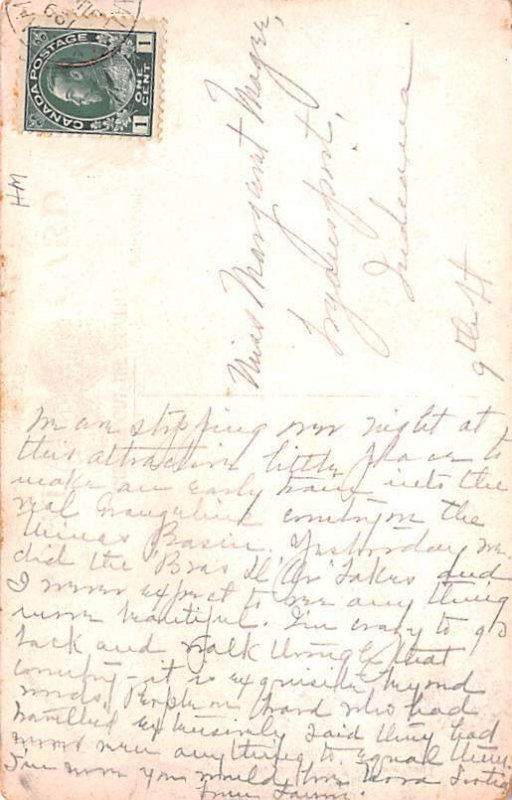 CANADA POSTAGE
ONE CENT
1 1
HM
Miss Margaret
Indiana
9th St
We are stopping over night at
this attractive little place to
make an early train into the
real Evangeline country on the
Minas Basin. Yesterday we
did the "Bras d'Or" Lakes and
I never expect to see any thing
more beautiful. I'm crazy to go
back and walk through that
country - it is exquisite beyond
words. People on board who had
travelled extensively said they had
never seen anything to equal them.
I'm sure you would love Nova Scotia